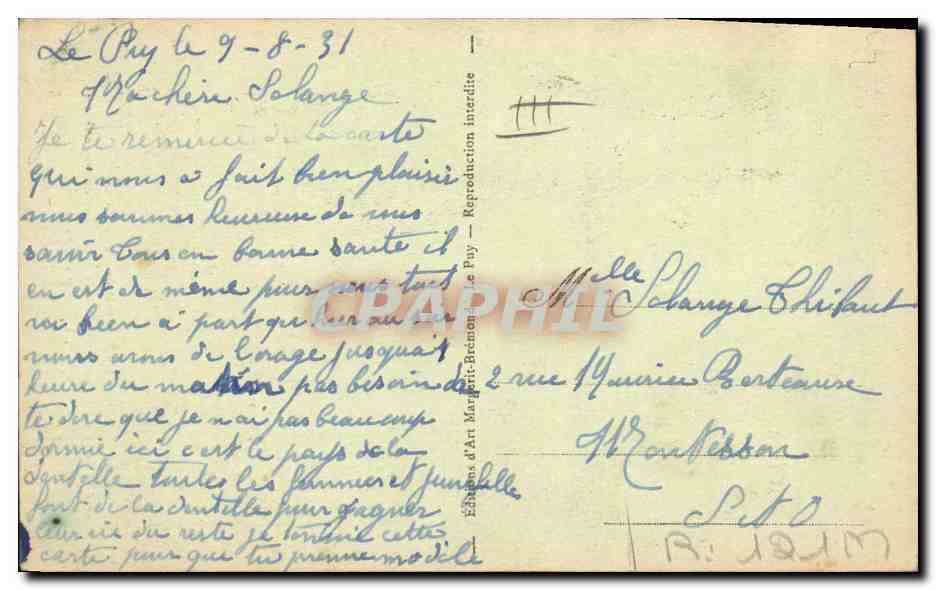 Le Puy le 9-8-31
Ma chère Solange
Je te remercie de la carte
qui nous a fait bien plaisir
nous sommes heureuse de vous
savoir tous en bonne santé il
en est de même pour nous tout
va bien à part qu'hier au soir
nous avons de l'orage jusqu'a 1
heure du matin pas besoin de
te dire que je n'ai pas beaucoup
dormie ici c'est le pays de la
dentelle toutes les femmes et jeunes filles
font de la dentelle pour gagner
leur vie du reste je t'envoie cette
carte pour que tu prenne modèle
Éditions d'Art Margerit-Brémond, Le Puy — Reproduction interdite —
CPAPHIL
Mlle Solange Thibaut
2 rue Maurice Berteaux
Montesson
S et O
R: 121M